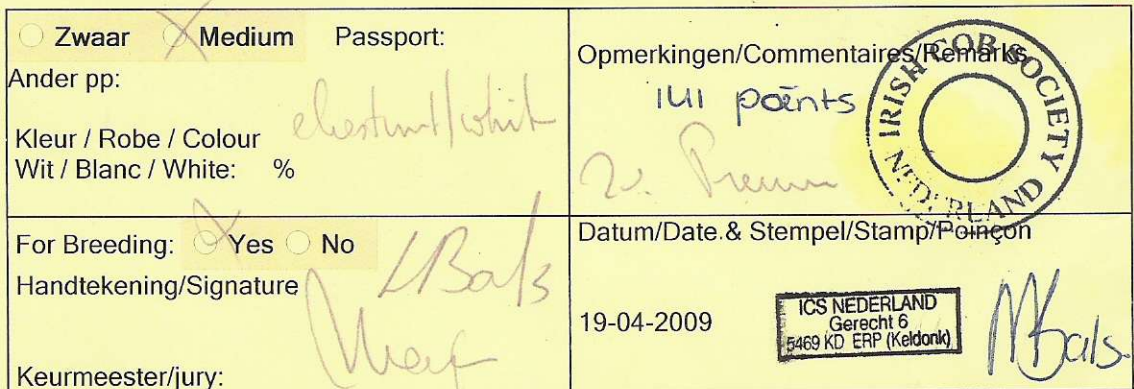 Zwaar Medium Passport:
Ander pp:
Kleur / Robe / Colour chestnut/whit
Wit / Blanc / White: %
Opmerkingen/Commentaires/Remarks
141 points
2e Premium
IRISH COB SOCIETY
NEDERLAND
For Breeding: Yes No
Handtekening/Signature LBals
Keurmeester/jury:
Datum/Date.& Stempel/Stamp/Poinçon
19-04-2009
ICS NEDERLAND
Gerecht 6
5469 KD ERP (Keldonk)
MBals.